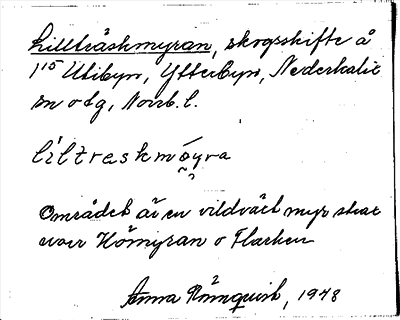 Lillträskmyran, skogsskifte å
1¹⁵ Utibyn, Ytterbyn, Nederkalix
sn o tg, Norrb. l.
líltreskmòyra
Området är en vildväxt myr strax
över Hömyran o Flarken
Anna Rönnquist, 1948